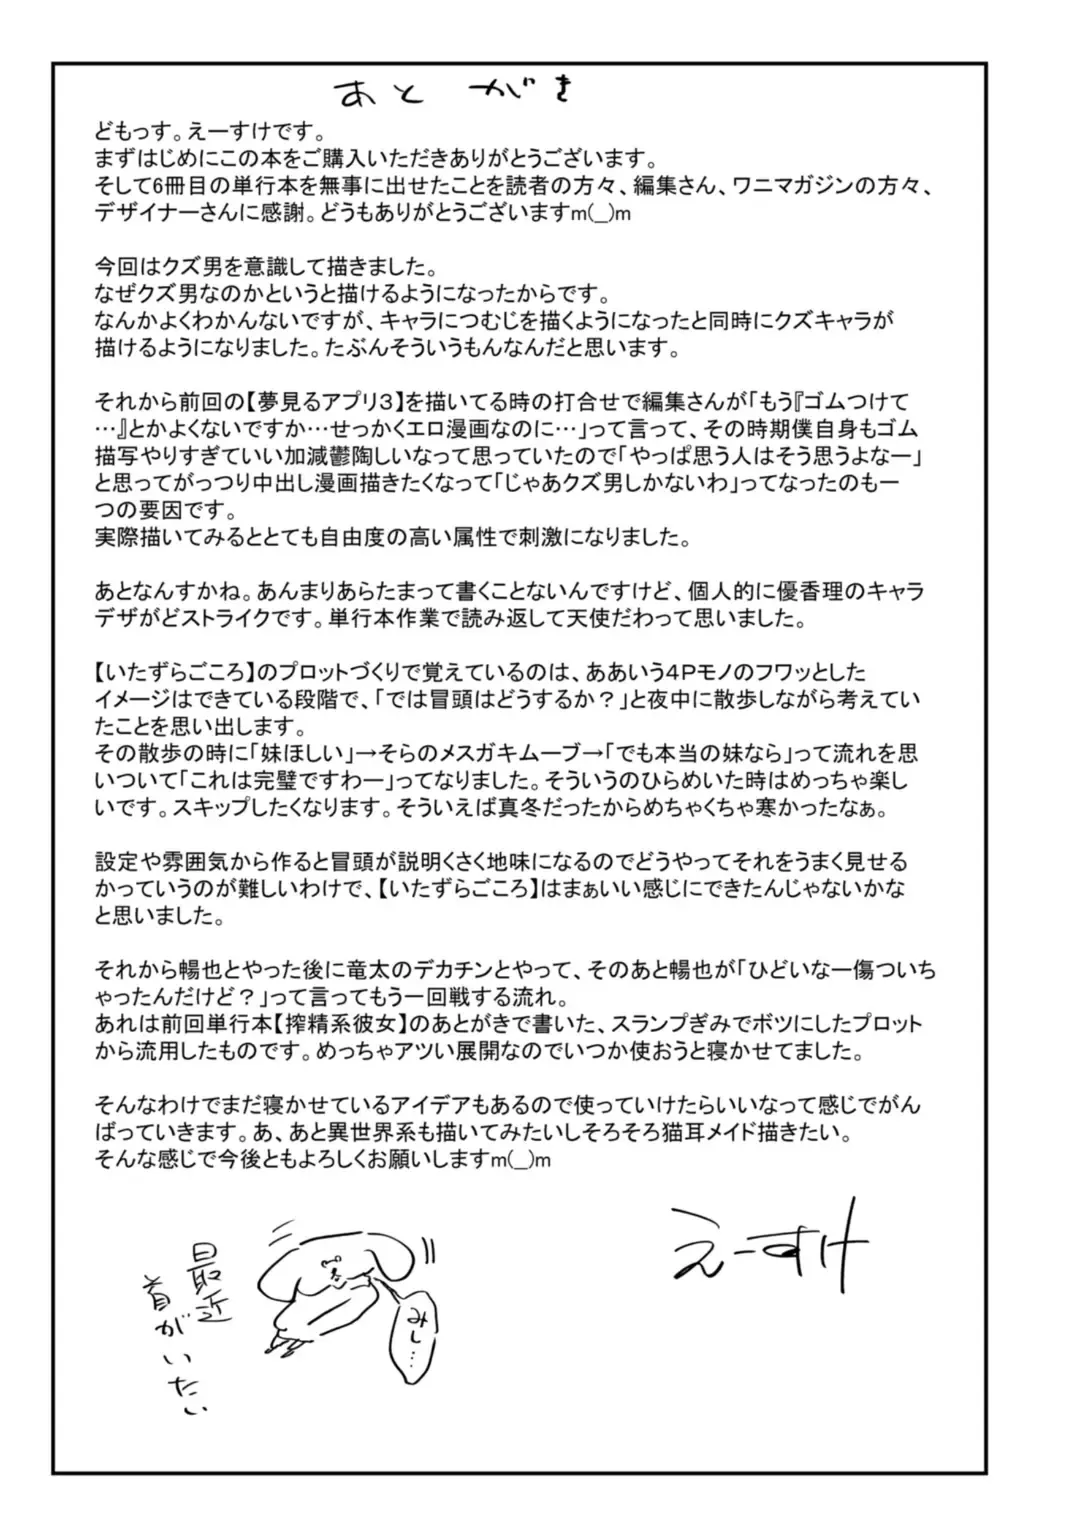 あとがき
どもっす。えーすけです。
まずはじめにこの本をご購入いただきありがとうございます。
そして6冊目の単行本を無事に出せたことを読者の方々、編集さん、ワニマガジンの方々、
デザイナーさんに感謝。どうもありがとうございますm(_)m
今回はクズ男を意識して描きました。
なぜクズ男なのかというと描けるようになったからです。
なんかよくわかんないですが、キャラにつむじを描くようになったと同時にクズキャラが
描けるようになりました。たぶんそういうもんなんだと思います。
それから前回の【夢見るアプリ３】を描いてる時の打合せで編集さんが「もう『ゴムつけて
…』とかよくないですか…せっかくエロ漫画なのに…」って言って、その時期僕自身もゴム
描写やりすぎていい加減鬱陶しいなって思っていたので「やっぱ思う人はそう思うよなー」
と思ってがっつり中出し漫画描きたくなって「じゃあクズ男しかないわ」ってなったのも一
つの要因です。
実際描いてみるととても自由度の高い属性で刺激になりました。
あとなんすかね。あんまりあらたまって書くことないんですけど、個人的に優香理のキャラ
デザがどストライクです。単行本作業で読み返して天使だわって思いました。
【いたずらごころ】のプロットづくりで覚えているのは、ああいう４Ｐモノのフワッとした
イメージはできている段階で、「では冒頭はどうするか？」と夜中に散歩しながら考えてい
たことを思い出します。
その散歩の時に「妹ほしい」→そらのメスガキムーブ→「でも本当の妹なら」って流れを思
いついて「これは完璧ですわー」ってなりました。そういうのひらめいた時はめっちゃ楽し
いです。スキップしたくなります。そういえば真冬だったからめちゃくちゃ寒かったなぁ。
設定や雰囲気から作ると冒頭が説明くさく地味になるのでどうやってそれをうまく見せる
かっていうのが難しいわけで、【いたずらごころ】はまぁいい感じにできたんじゃないかな
と思いました。
それから暢也とやった後に竜太のデカチンとやって、そのあと暢也が「ひどいなー傷ついち
ゃったんだけど？」って言ってもう一回戦する流れ。
あれは前回単行本【搾精系彼女】のあとがきで書いた、スランプぎみでボツにしたプロット
から流用したものです。めっちゃアツい展開なのでいつか使おうと寝かせてました。
そんなわけでまだ寝かせているアイデアもあるので使っていけたらいいなって感じでがん
ばっていきます。あ、あと異世界系も描いてみたいしそろそろ猫耳メイド描きたい。
そんな感じで今後ともよろしくお願いしますm(_)m
えーすけ
最近
首がいたい
みし…